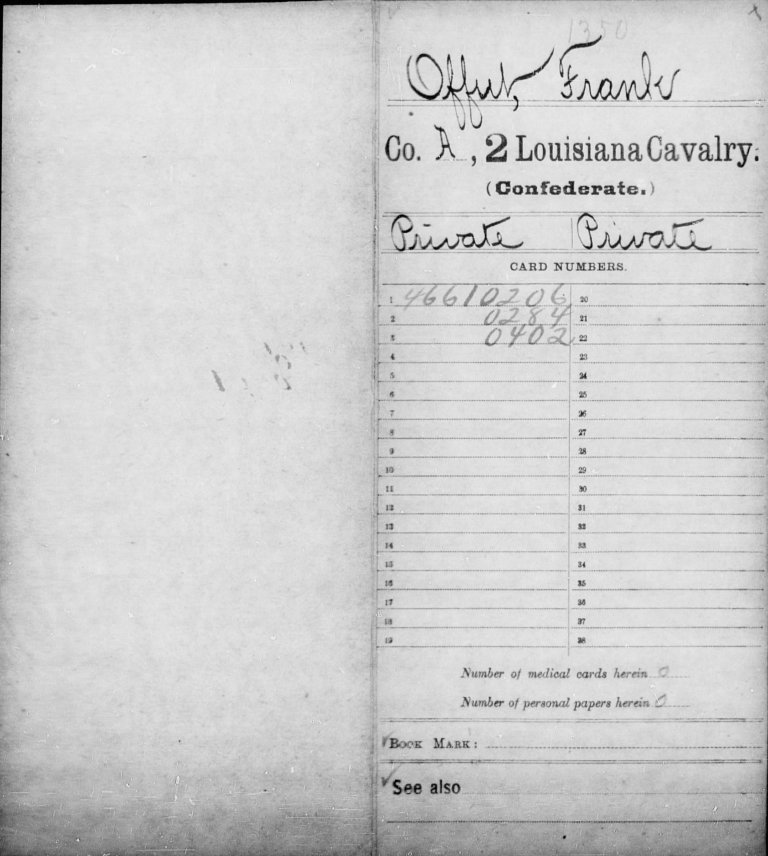 1350
Offut, Frank
Co. A, 2 Louisiana Cavalry.
(Confederate.)
Private Private
CARD NUMBERS.
1 46610206 20
2 0284 21
3 0402 22
4 23
5 24
6 25
7 26
8 27
9 28
10 29
11 30
12 31
13 32
14 33
15 34
16 35
17 36
18 37
19 38
Number of medical cards herein 0
Number of personal papers herein 0
BOOK MARK:
See also